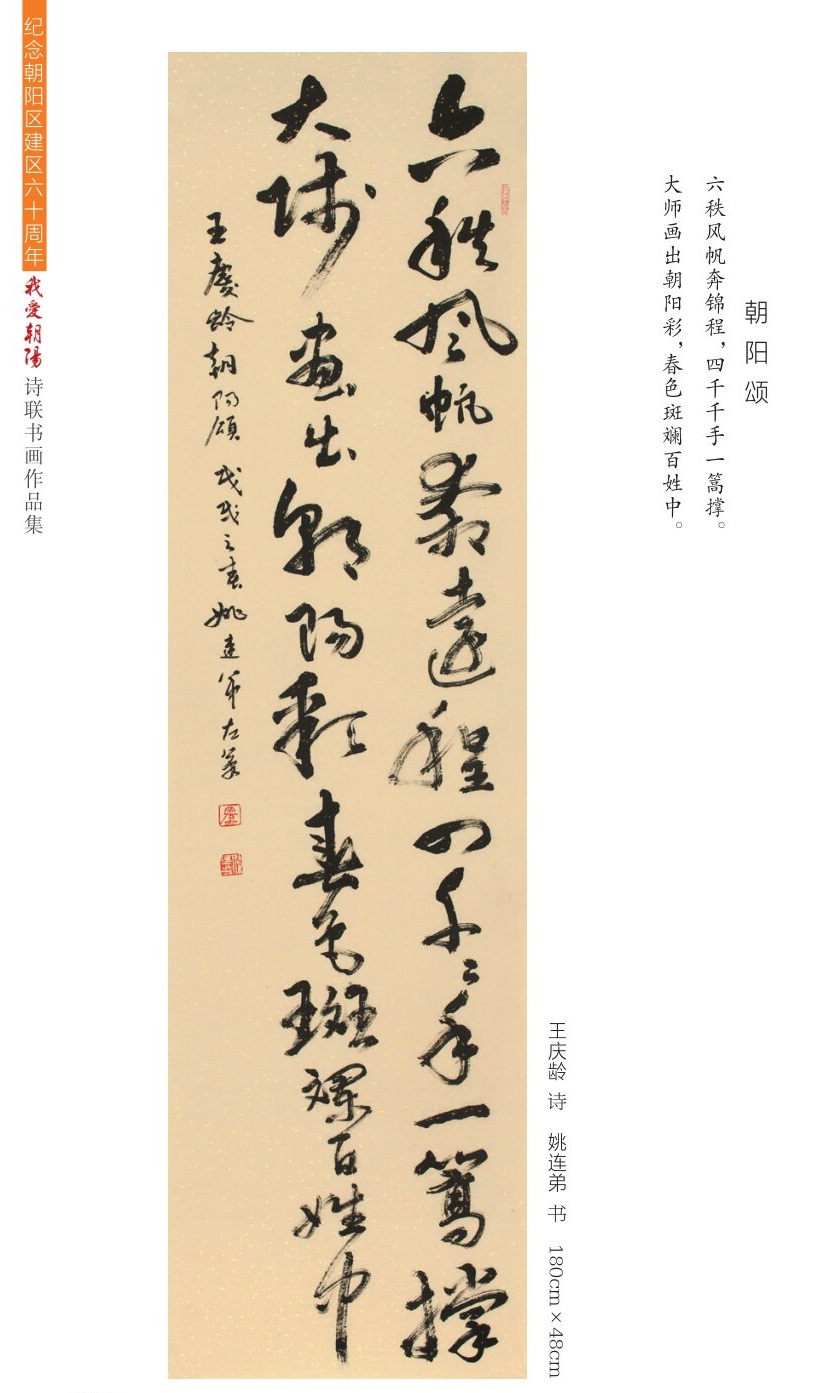 朝阳颂
六秩风帆奔锦程，四千千手一篙撑。
大师画出朝阳彩，春色斑斓百姓中。
王庆龄 诗 姚连弟 书 180cm×48cm
六秩風帆奔遠程四千〻手一篙撐
大師畫出朝陽彩春色斑斕百姓中
王慶齡朝陽頌 戊戌之春姚連弟左筆
纪念朝阳区建区六十周年 我愛朝陽 诗联书画作品集